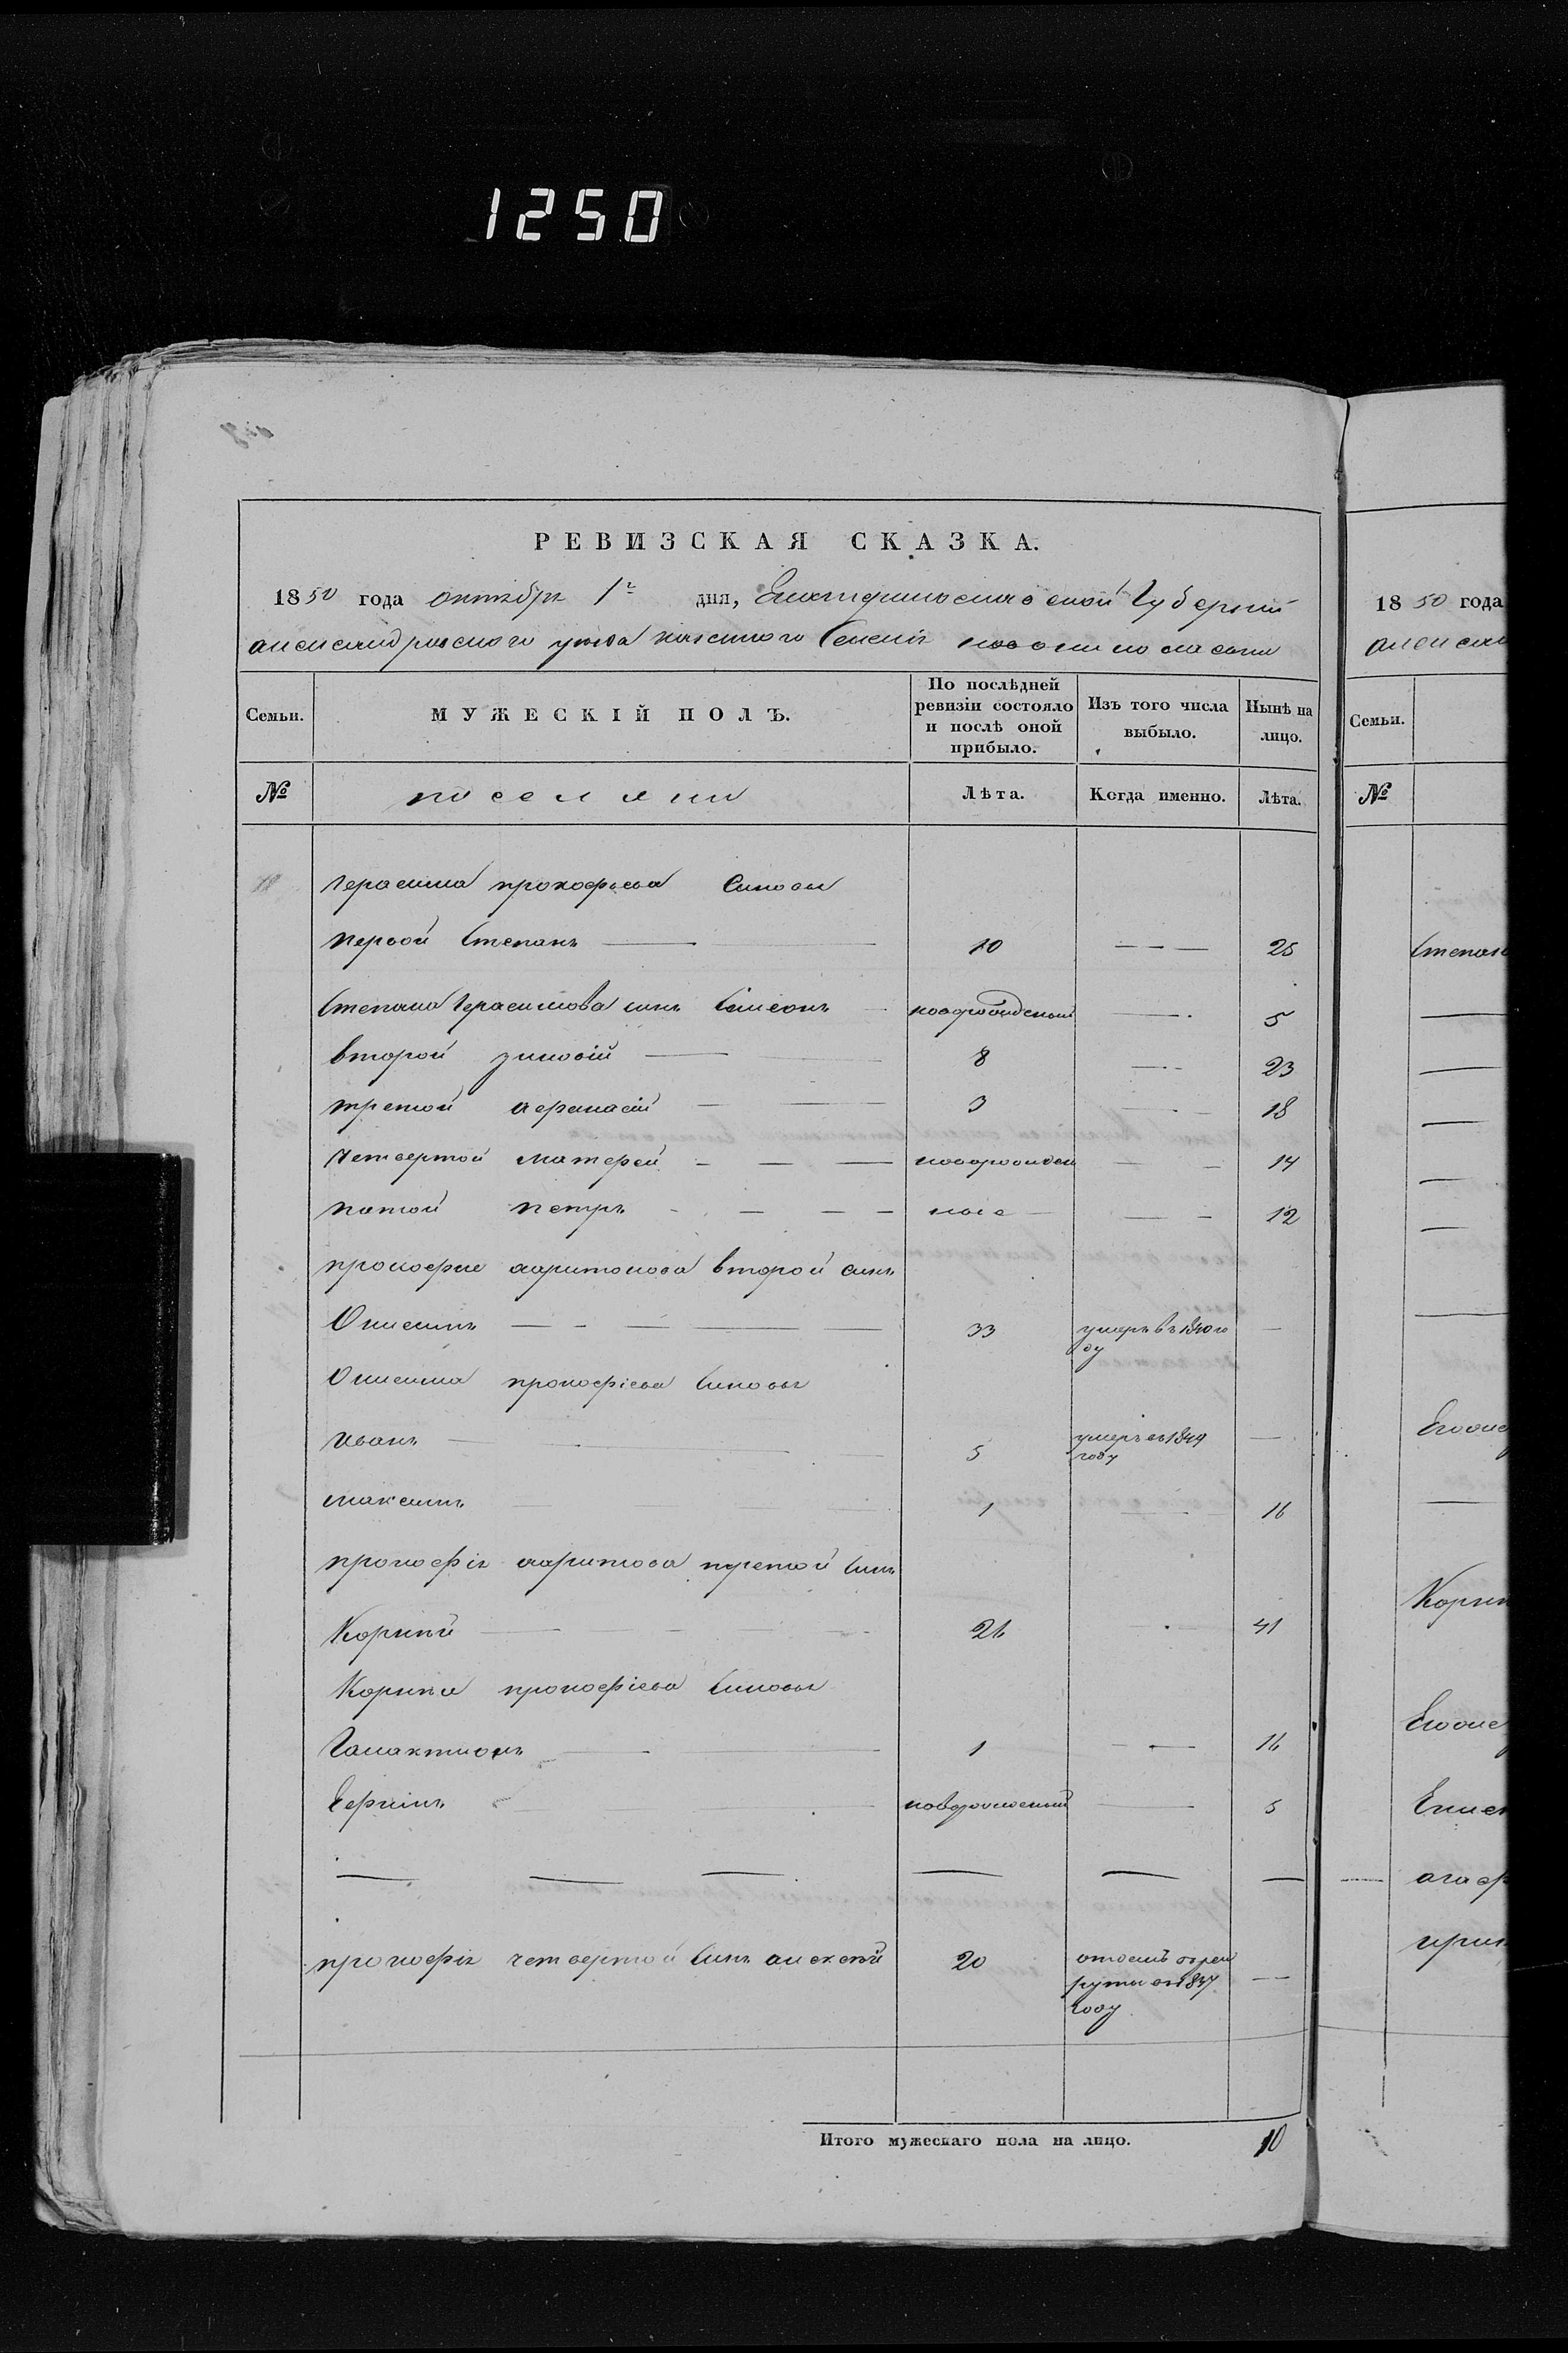 1250
РЕВИЗСКАЯ СКАЗКА.
1850 года октября 1го дня, Екатеринославской Губернии
александровского уезда казенного Селения
Семьи.
МУЖЕСКІЙ ПОЛЪ.
По послѣдней ревизіи состояло и послѣ оной прибыло.
Изъ того числа выбыло.
Нынѣ на лицо.
№
поселяни
Лѣта.
Когда именно.
Лѣта.
18 герасима прокофьева Синовы
первой Степанъ 10 25
Степана Герасимова синъ Симеонъ новорожденый 5
второй зиновій 8 23
третой афанасій 3 18
четвертой матфей новорожден 14
пятой петръ ные 12
прокофие харитонова второй синъ
Онисимъ 33 умеръ въ 1840 го
ду
Онисима прокофіева Синовы
иванъ 5 умеръ въ 1849
году
максимъ 1 16
прокофія харитова третой Синъ
Корний 26 41
Корния прокофіева Синовы
Галактионъ 1 16
новорожденый 5
прокофія четвертой Синъ алексей 20 отданъ в рек
руты в 1837
году
Итого мужескаго пола на лицо. 10
18 50 года
алексан
Семьи.
№
Степан
Корни
Агаф
ирин